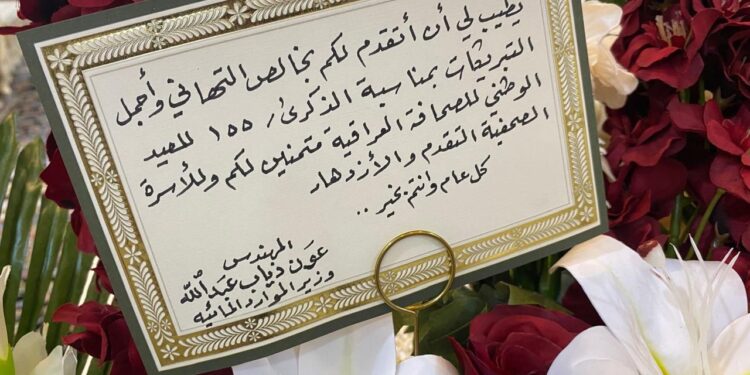 يطيب لي أن أتقدم لكم بخالص التهاني وأجمل
التبريكات بمناسبة الذكرى/ ١٥٥ للعيد
الوطني للصحافة العراقية متمنين لكم وللأسرة
الصحفية التقدم والأزدهار
كل عام وانتم بخير ..
المهندس
عون ذياب عبدالله
وزير الموارد المائية